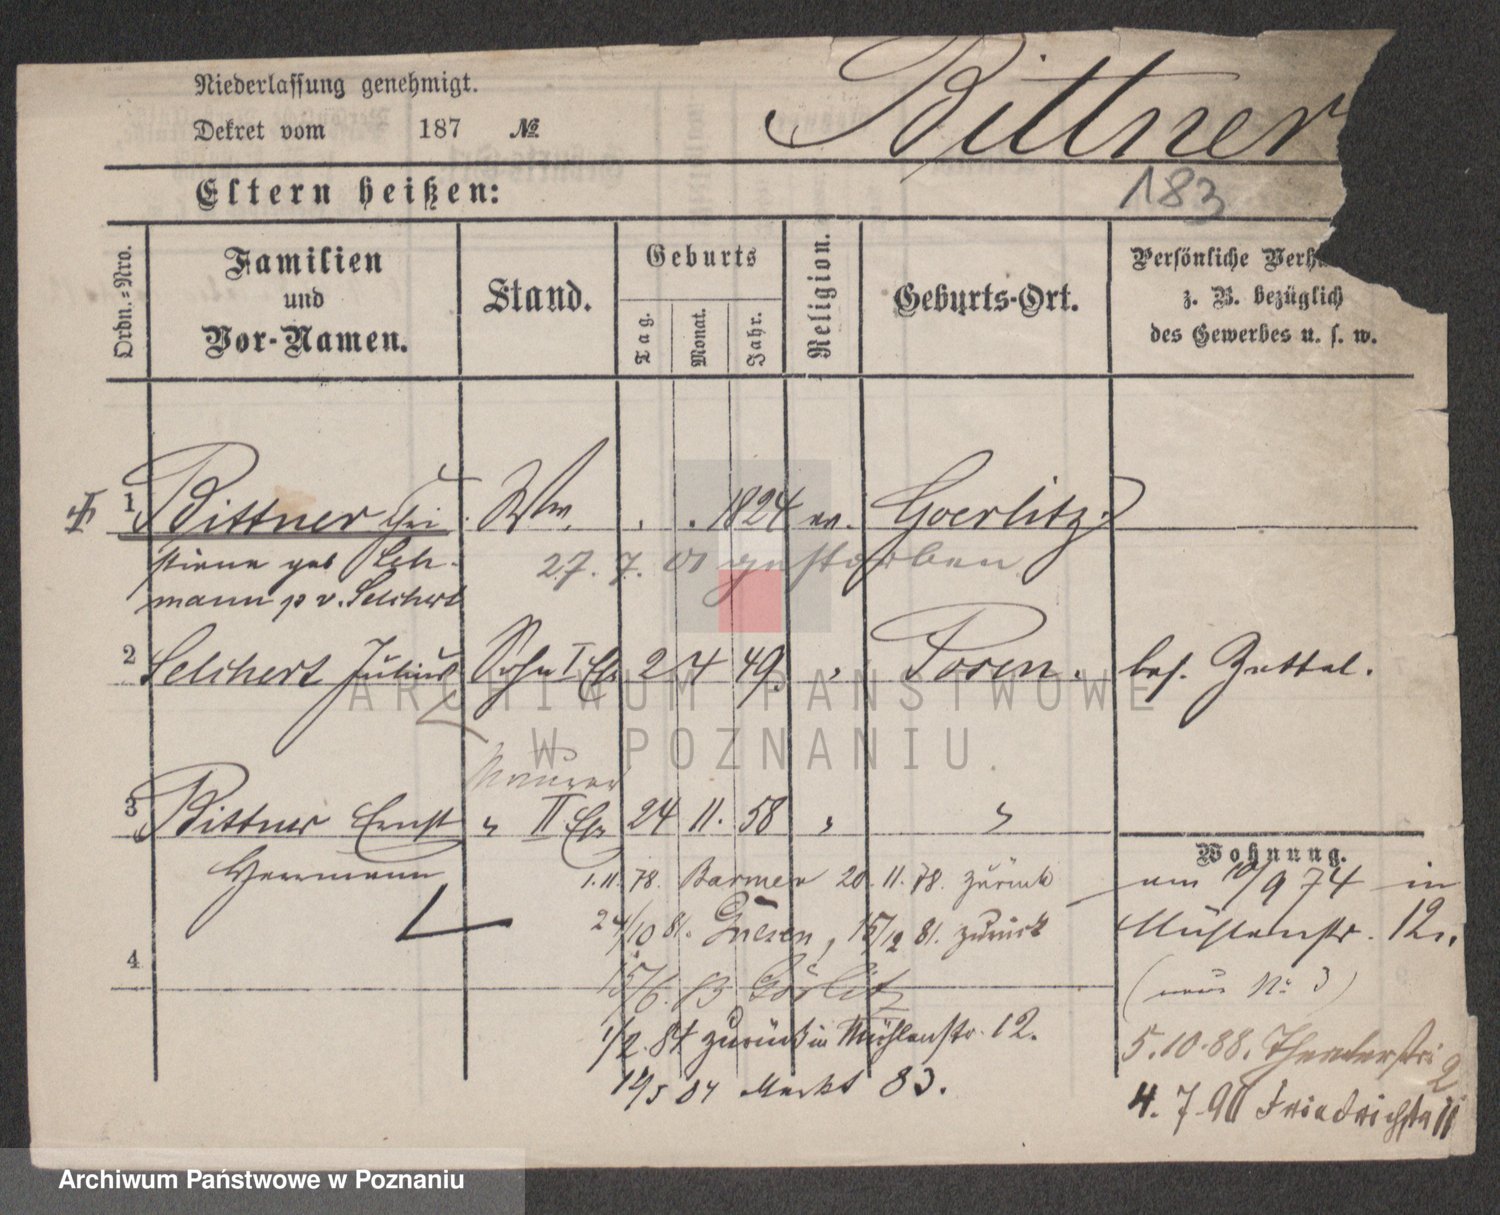 Niederlassung genehmigt.
Dekret vom 187 №
Bittner
183
Eltern heißen:
Ordn.-Nro.
Familien
und
Vor-Namen.
Stand.
Geburts
Tag.
Monat.
Jahr.
Religion.
Geburts-Ort.
Persönliche Verh
z. B. bezüglich
des Gewerbes u. s. w.
1 Bittner Chri Ww. . . 1824 ev. Goerlitz
stiane geb Leh-
27. 7. 01 gestorben
mann p v. Selchert
2 Selchert Julius Sohn I Ehe 2 4 49. " Posen. bes. Zettel.
Maurer
3 Bittner Ernst " II Ehe 24 11. 58 " "
Herrmann
Wohnung.
1.11.78. Barmen 20.11.78. zurück
am 10/9 74 in
24/10 81. Gnesen, 15/12 81. zurück
Mühlenstr. 12.
4
15/6. 83 Görlitz
(neue № 3)
1/2. 84 zurück in Mühlenstr. 12.
5.10.88. Theaterstr. 2
84 Markt 83.
4. 7. 90 Friedrichstr 11
ARCHIWUM PAŃSTWOWE
W POZNANIU.
Archiwum Państwowe w Poznaniu